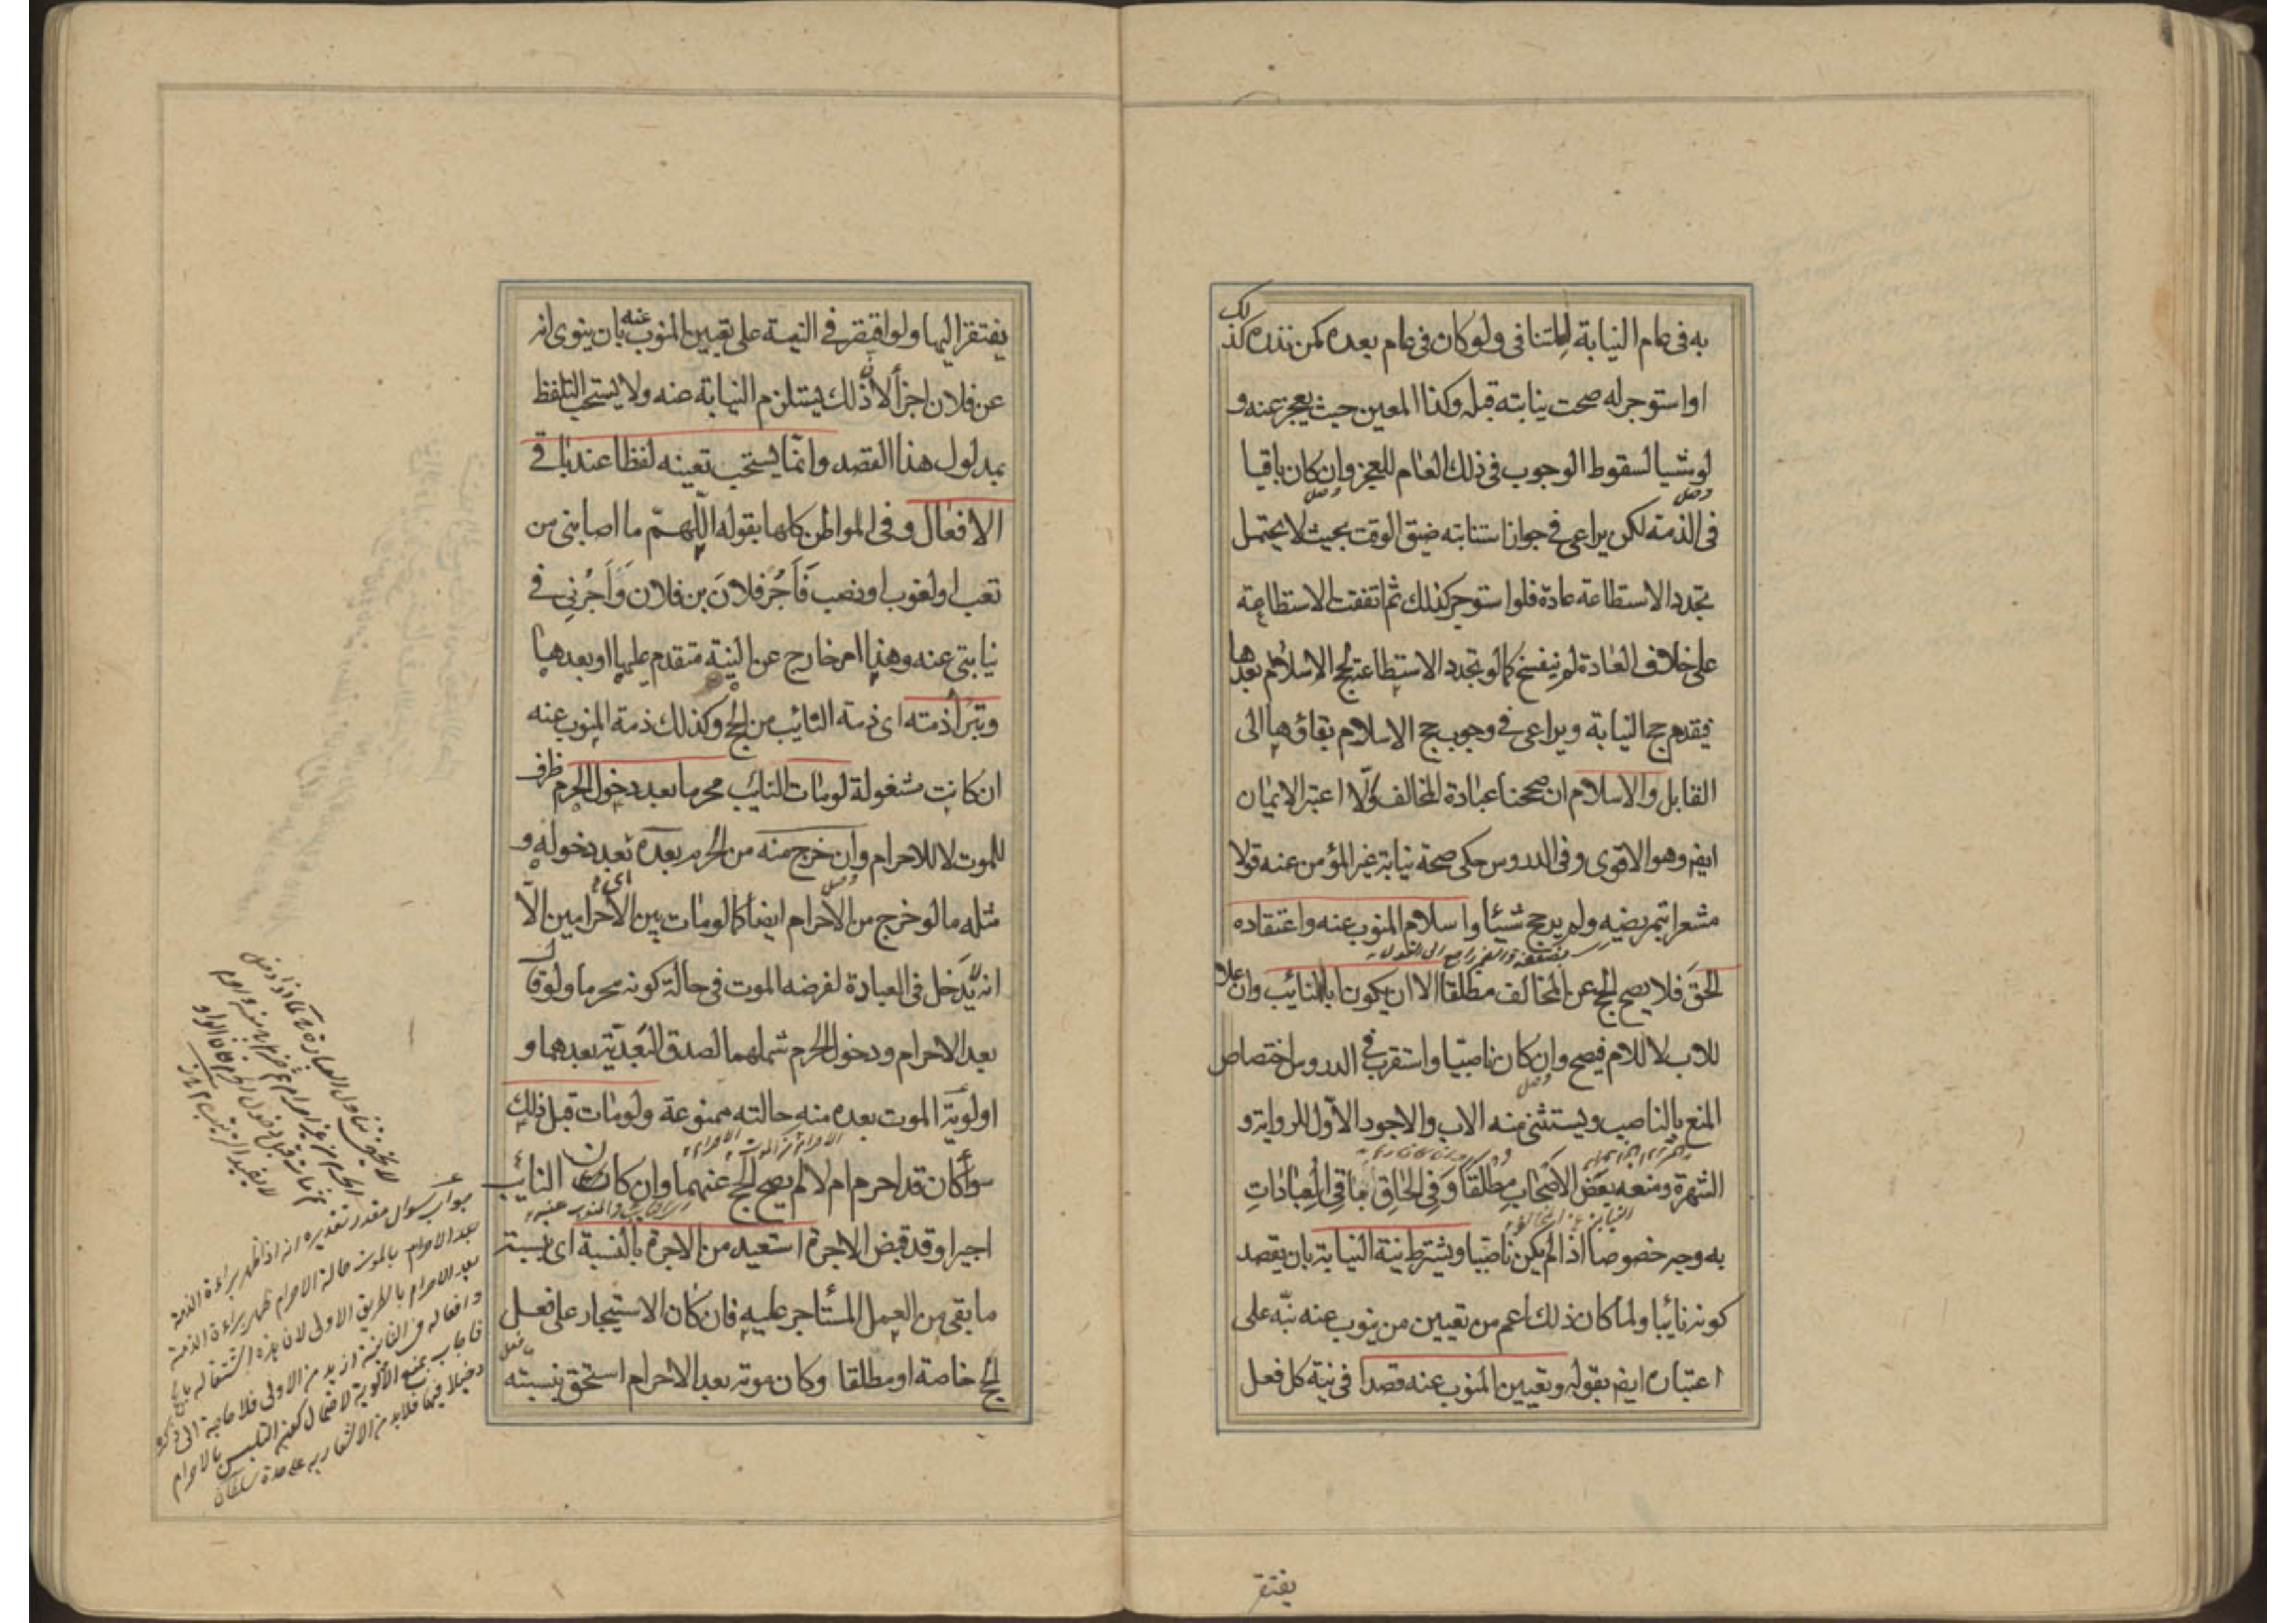 به في عام النيابة للتنافى ولو كان في عام بعده كمن نذره كذلك
او استوجر له صحت نيابته قبله وكذا المعين حيث يعجز عنه و
لو مشيا لسقوط الوجوب في ذلك العام للعجز وان كان باقيا
في الذمة لكن يراعى في جواز استنابته ضيق الوقت بحيث لا يحتمل
تجدد الاستطاعة عادة فلو استوجر كذلك ثم اتفقت الاستطاعة
على خلاف العادة لم ينفسخ كما لو تجدد الاستطاعة لحج الاسلام بعدها
فيقدم حج النيابة ويراعى في وجوب حج الاسلام بقاؤها الى
القابل والاسلام ان صححنا عبادة المخالف والا اعتبر الايمان
ايضا وهو الاقوى وفي الدروس حكى صحة نيابة غير المؤمن عنه قولا
مشعرا بتمريضه ولم يرجح شيئا واسلام المنوب عنه واعتقاده
الحق فلا يصح الحج عن المخالف مطلقا الا ان يكون ابا للنائب وان علا
للاب لا للام فيصح وان كان ناصبيا واستقرب في الدروس اختصاص
المنع بالناصب ويستثنى منه الاب والاجود الاول للرواية و
الشهرة ومنعه بعض الاصحاب مطلقا وفي الحاق باقي العبادات
به وجه خصوصا اذا لم يكن ناصبيا ويشترط نية النيابة بان يقصد
كونه نائبا ولما كان ذلك اعم من تعيين من ينوب عنه نبه على
اعتباره ايضا بقوله وتعيين المنوب عنه قصدا في نية كل فعل
يفتقر
يفتقر اليها ولو اقتصر في النية على تعيين المنوب عنه بان ينوى انه
عن فلان اجزأ لان ذلك يستلزم النيابة عنه ولا يستحب التلفظ
بمدلول هذا القصد وانما يستحب تعينه لفظا عند باقي
الافعال وفي المواطن كلها بقوله اللهم ما اصابني من
تعب او لغوب او نصب فأجر فلان بن فلان وأجرني في
نيابتي عنه وهذا امر خارج عن النية متقدم عليها او بعدها
وتبرأ ذمته اى ذمة النائب من الحج وكذلك ذمة المنوب عنه
ان كانت مشغولة لو مات النائب محرما بعد دخول الحرم ظرف
للموت لا للاحرام وان خرج منه من الحرم بعده بعد دخوله و
مثله ما لو خرج من الاحرام ايضا كما لو مات بين الاحرامين الا
انه لا يدخل في العبادة لفرضه الموت في حالة كونه محرما ولو قال
بعد الاحرام ودخول الحرم شملهما لصدق البعدية بعدهما و
اولوية الموت بعده منه حالته ممنوعة ولو مات قبل ذلك
سواء كان قد احرم ام لا لم يصح الحج عنهما وان كان النائب
اجيرا وقد قبض الاجرة استعيد من الاجرة بالنسبة اى بنسبة
ما بقي من العمل المستأجر عليه فان كان الاستيجار على فعل
الحج خاصة او مطلقا وكان موته بعد الاحرام استحق بنسبته
جواب سوال مقدر تقديره انه اذا ظهر براءة الذمة
بالموت حالة الاحرام ظهر براءة الذمة
بعد الاحرام بالطريق الاولى